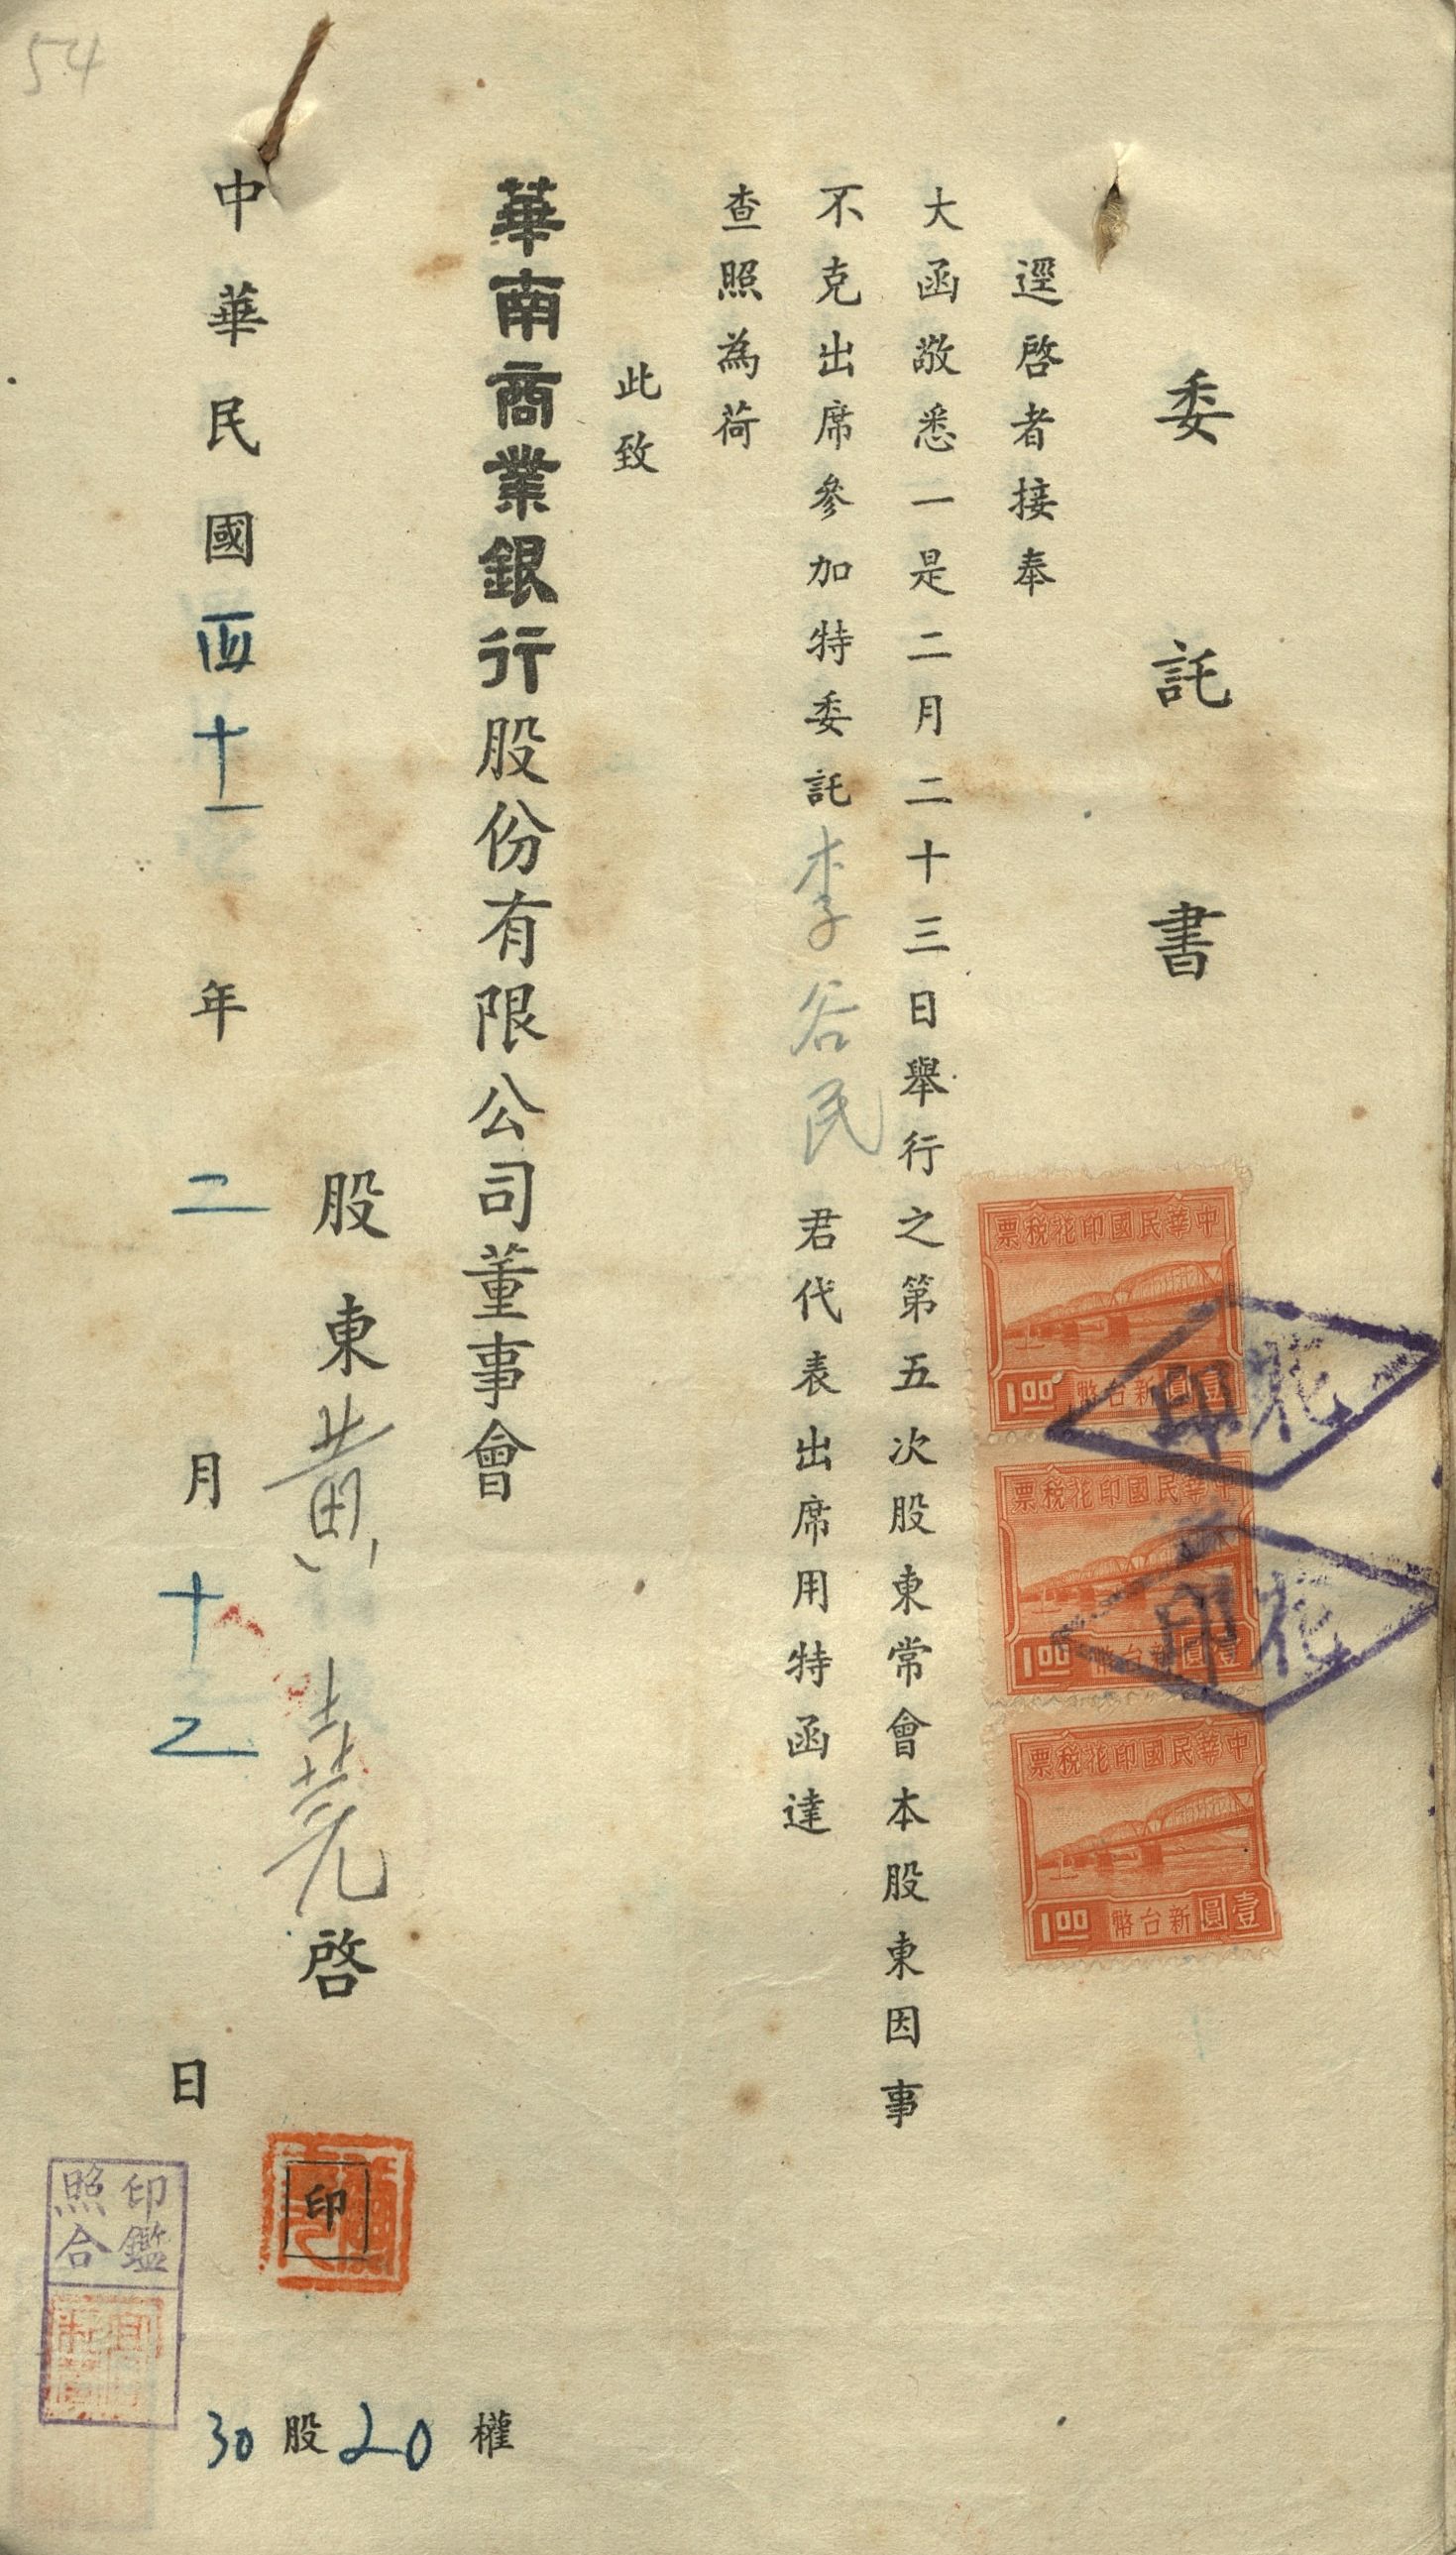 54
委託書
逕啓者接奉
大函敬悉一是二月二十三日舉行之第五次股東常會本股東因事
不克出席參加特委託李谷民君代表出席用特函達
查照為荷
此致
華南商業銀行股份有限公司董事會
股東黃堯啓
印
中華民國四十一年二月十乙日
30股20權
印鑑
照合
中華民國印花稅票
壹圓新台幣1.00
中華民國印花稅票
壹圓新台幣1.00
中華民國印花稅票
壹圓新台幣1.00
花印
花印